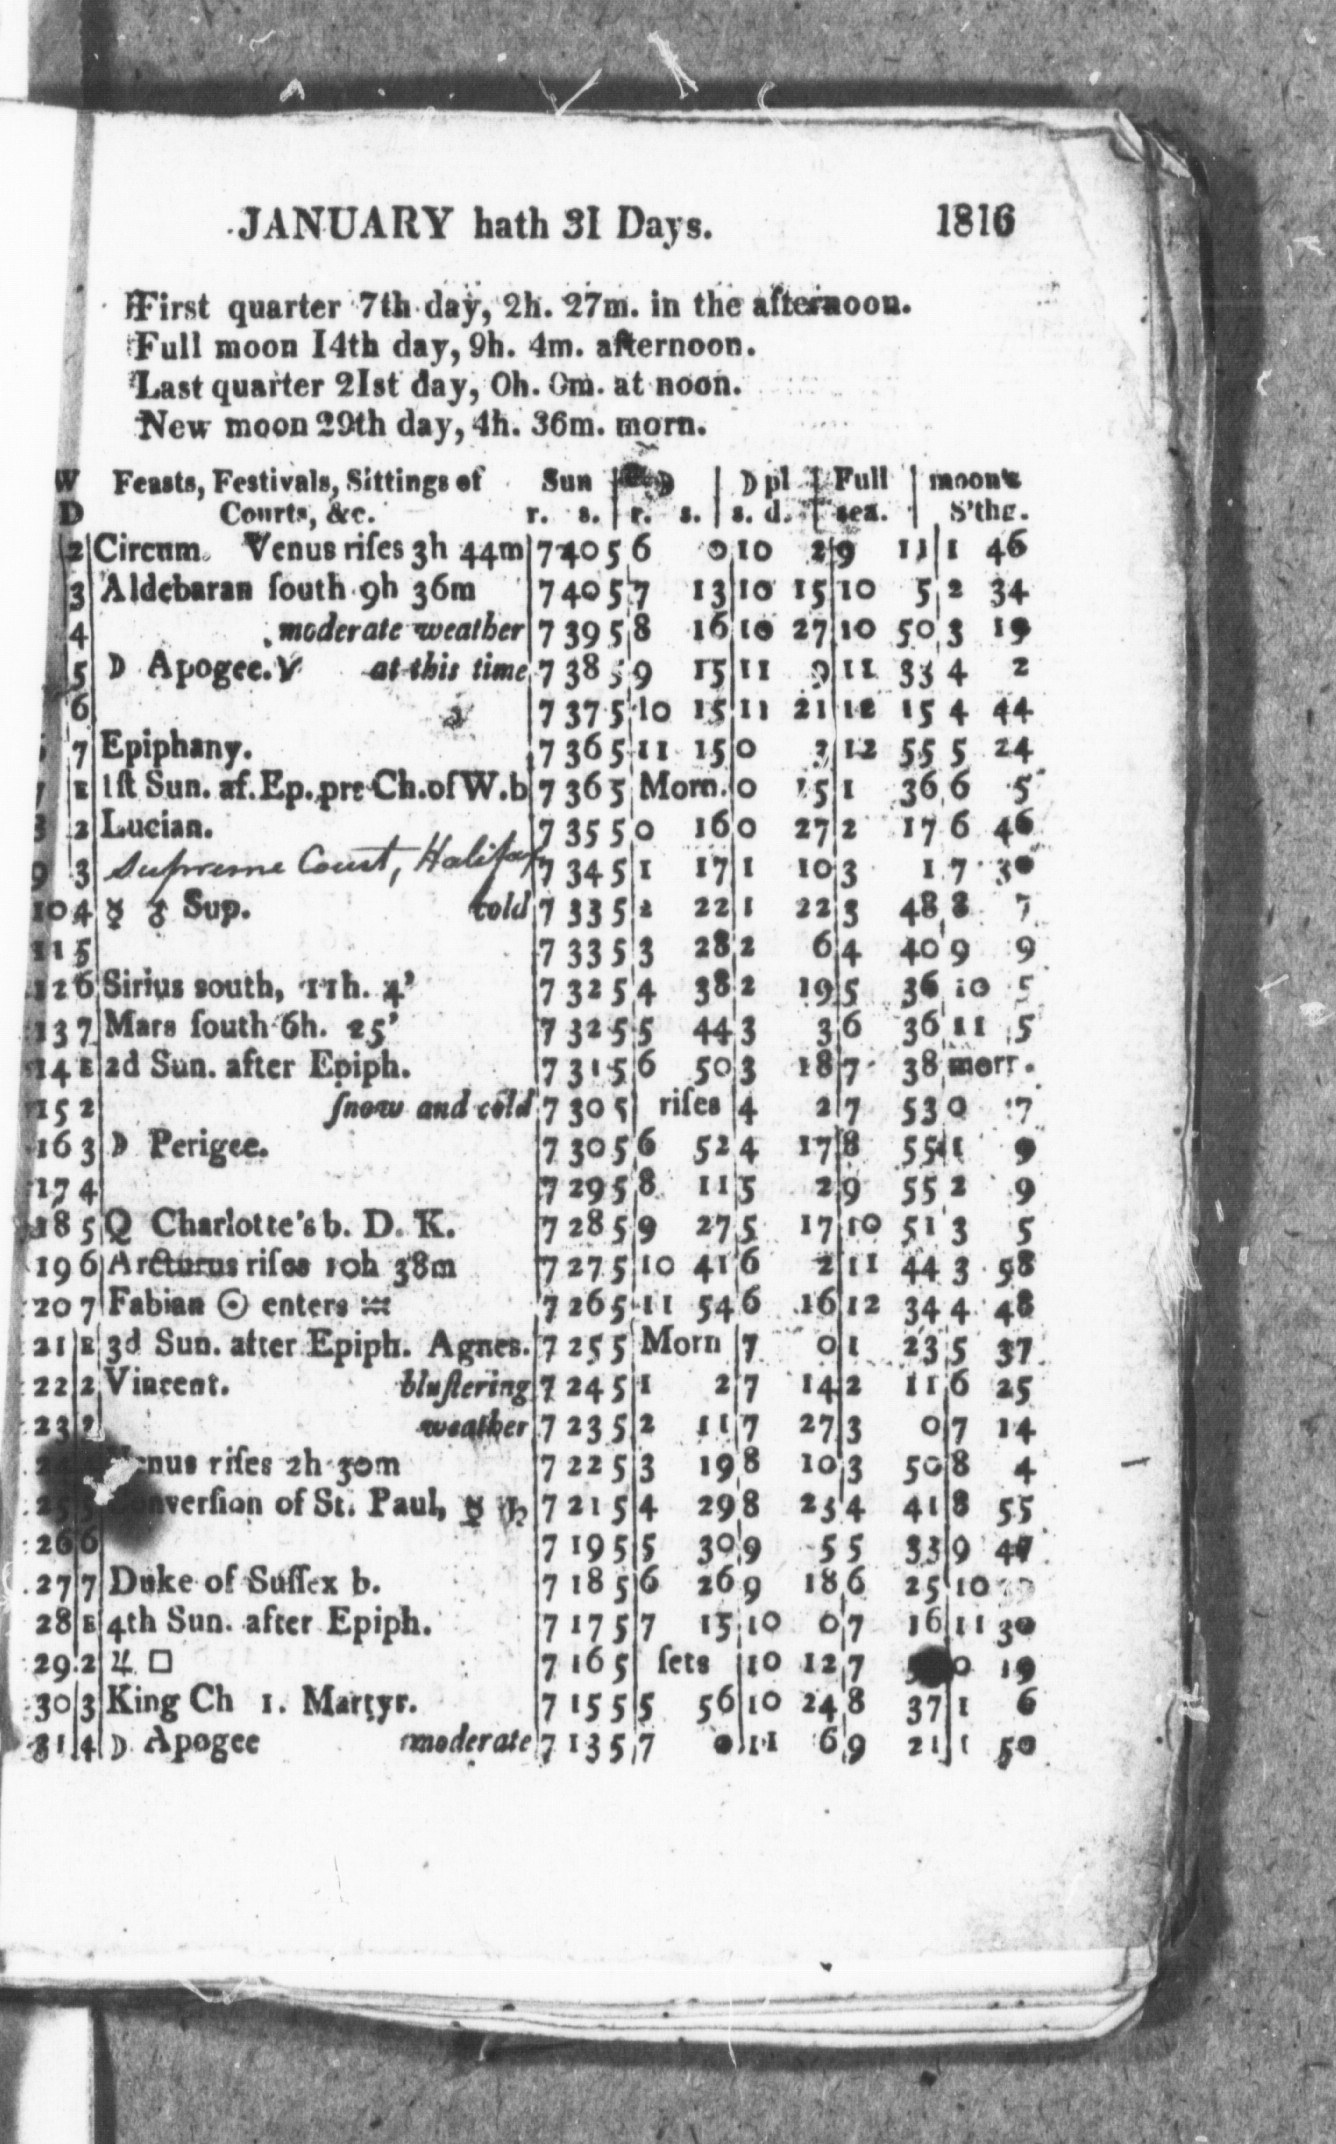 JANUARY hath 31 Days. 1816
First quarter 7th day, 2h. 27m. in the afternoon.
Full moon 14th day, 9h. 4m. afternoon.
Last quarter 21st day, 0h. 0m. at noon.
New moon 29th day, 4h. 36m. morn.
W Feasts, Festivals, Sittings of Sun ☽ ☽ pl Full moon's
D Courts, &c. r. s. r. s. s. d. sea. S'thg.
2 Circum. Venus riſes 3h 44m 7 40 5 6 0 10 2 9 11 1 46
3 Aldebaran ſouth 9h 36m 7 40 5 7 13 10 15 10 5 2 34
4 moderate weather 7 39 5 8 16 10 27 10 50 3 19
5 ☽ Apogee. at this time 7 38 5 9 15 11 9 11 33 4 2
6 7 37 5 10 15 11 21 12 15 4 44
7 Epiphany. 7 36 5 11 15 0 3 12 55 5 24
7 E 1ſt Sun. af. Ep. pre Ch. of W. b 7 36 5 Morn. 0 15 1 36 6 5
8 2 Lucian. 7 35 5 0 16 0 27 2 17 6 46
9 3 Supreme Court, Halifax 7 34 5 1 17 1 10 3 1 7 30
10 4 ☿ ♂ Sup. cold 7 33 5 2 22 1 22 3 48 8 7
11 5 7 33 5 3 28 2 6 4 40 9 9
12 6 Sirius south, 11h. 4' 7 32 5 4 38 2 19 5 36 10 5
13 7 Mars ſouth 6h. 25' 7 32 5 5 44 3 3 6 36 11 5
14 E 2d Sun. after Epiph. 7 31 5 6 50 3 18 7 38 morr.
15 2 ſnow and cold 7 30 5 riſes 4 2 7 53 0 7
16 3 ☽ Perigee. 7 30 5 6 52 4 17 8 55 1 9
17 4 7 29 5 8 11 5 2 9 55 2 9
18 5 Q Charlotte's b. D. K. 7 28 5 9 27 5 17 10 51 3 5
19 6 Arcturus riſes 10h 38m 7 27 5 10 41 6 2 11 44 3 58
20 7 Fabian ☉ enters ♒ 7 26 5 11 54 6 16 12 34 4 48
21 E 3d Sun. after Epiph. Agnes. 7 25 5 Morn 7 0 1 23 5 37
22 2 Vincent. bluſtering 7 24 5 1 2 7 14 2 11 6 25
23 weather 7 23 5 2 11 7 27 3 0 7 14
24 Venus riſes 2h 30m 7 22 5 3 19 8 10 3 50 8 4
25 5 Converſion of St. Paul, ☿ ♄ 7 21 5 4 29 8 23 4 41 8 55
26 6 7 19 5 5 30 9 5 5 33 9 47
27 7 Duke of Suſſex b. 7 18 5 6 26 9 18 6 25 10
28 E 4th Sun. after Epiph. 7 17 5 7 15 10 0 7 16 11 30
29 2 ♃ □ 7 16 5 ſets 10 12 7 0 19
30 3 King Ch 1. Martyr. 7 15 5 5 56 10 24 8 37 1 6
31 4 ☽ Apogee moderate 7 13 5 7 0 11 6 9 21 1 50